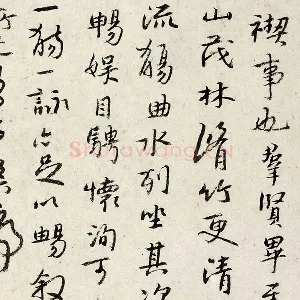 禊事也羣賢畢至
山茂林脩竹更清
流觴曲水列坐其次
暢娱目騁懷洵可
一觴一詠亦足以暢叙